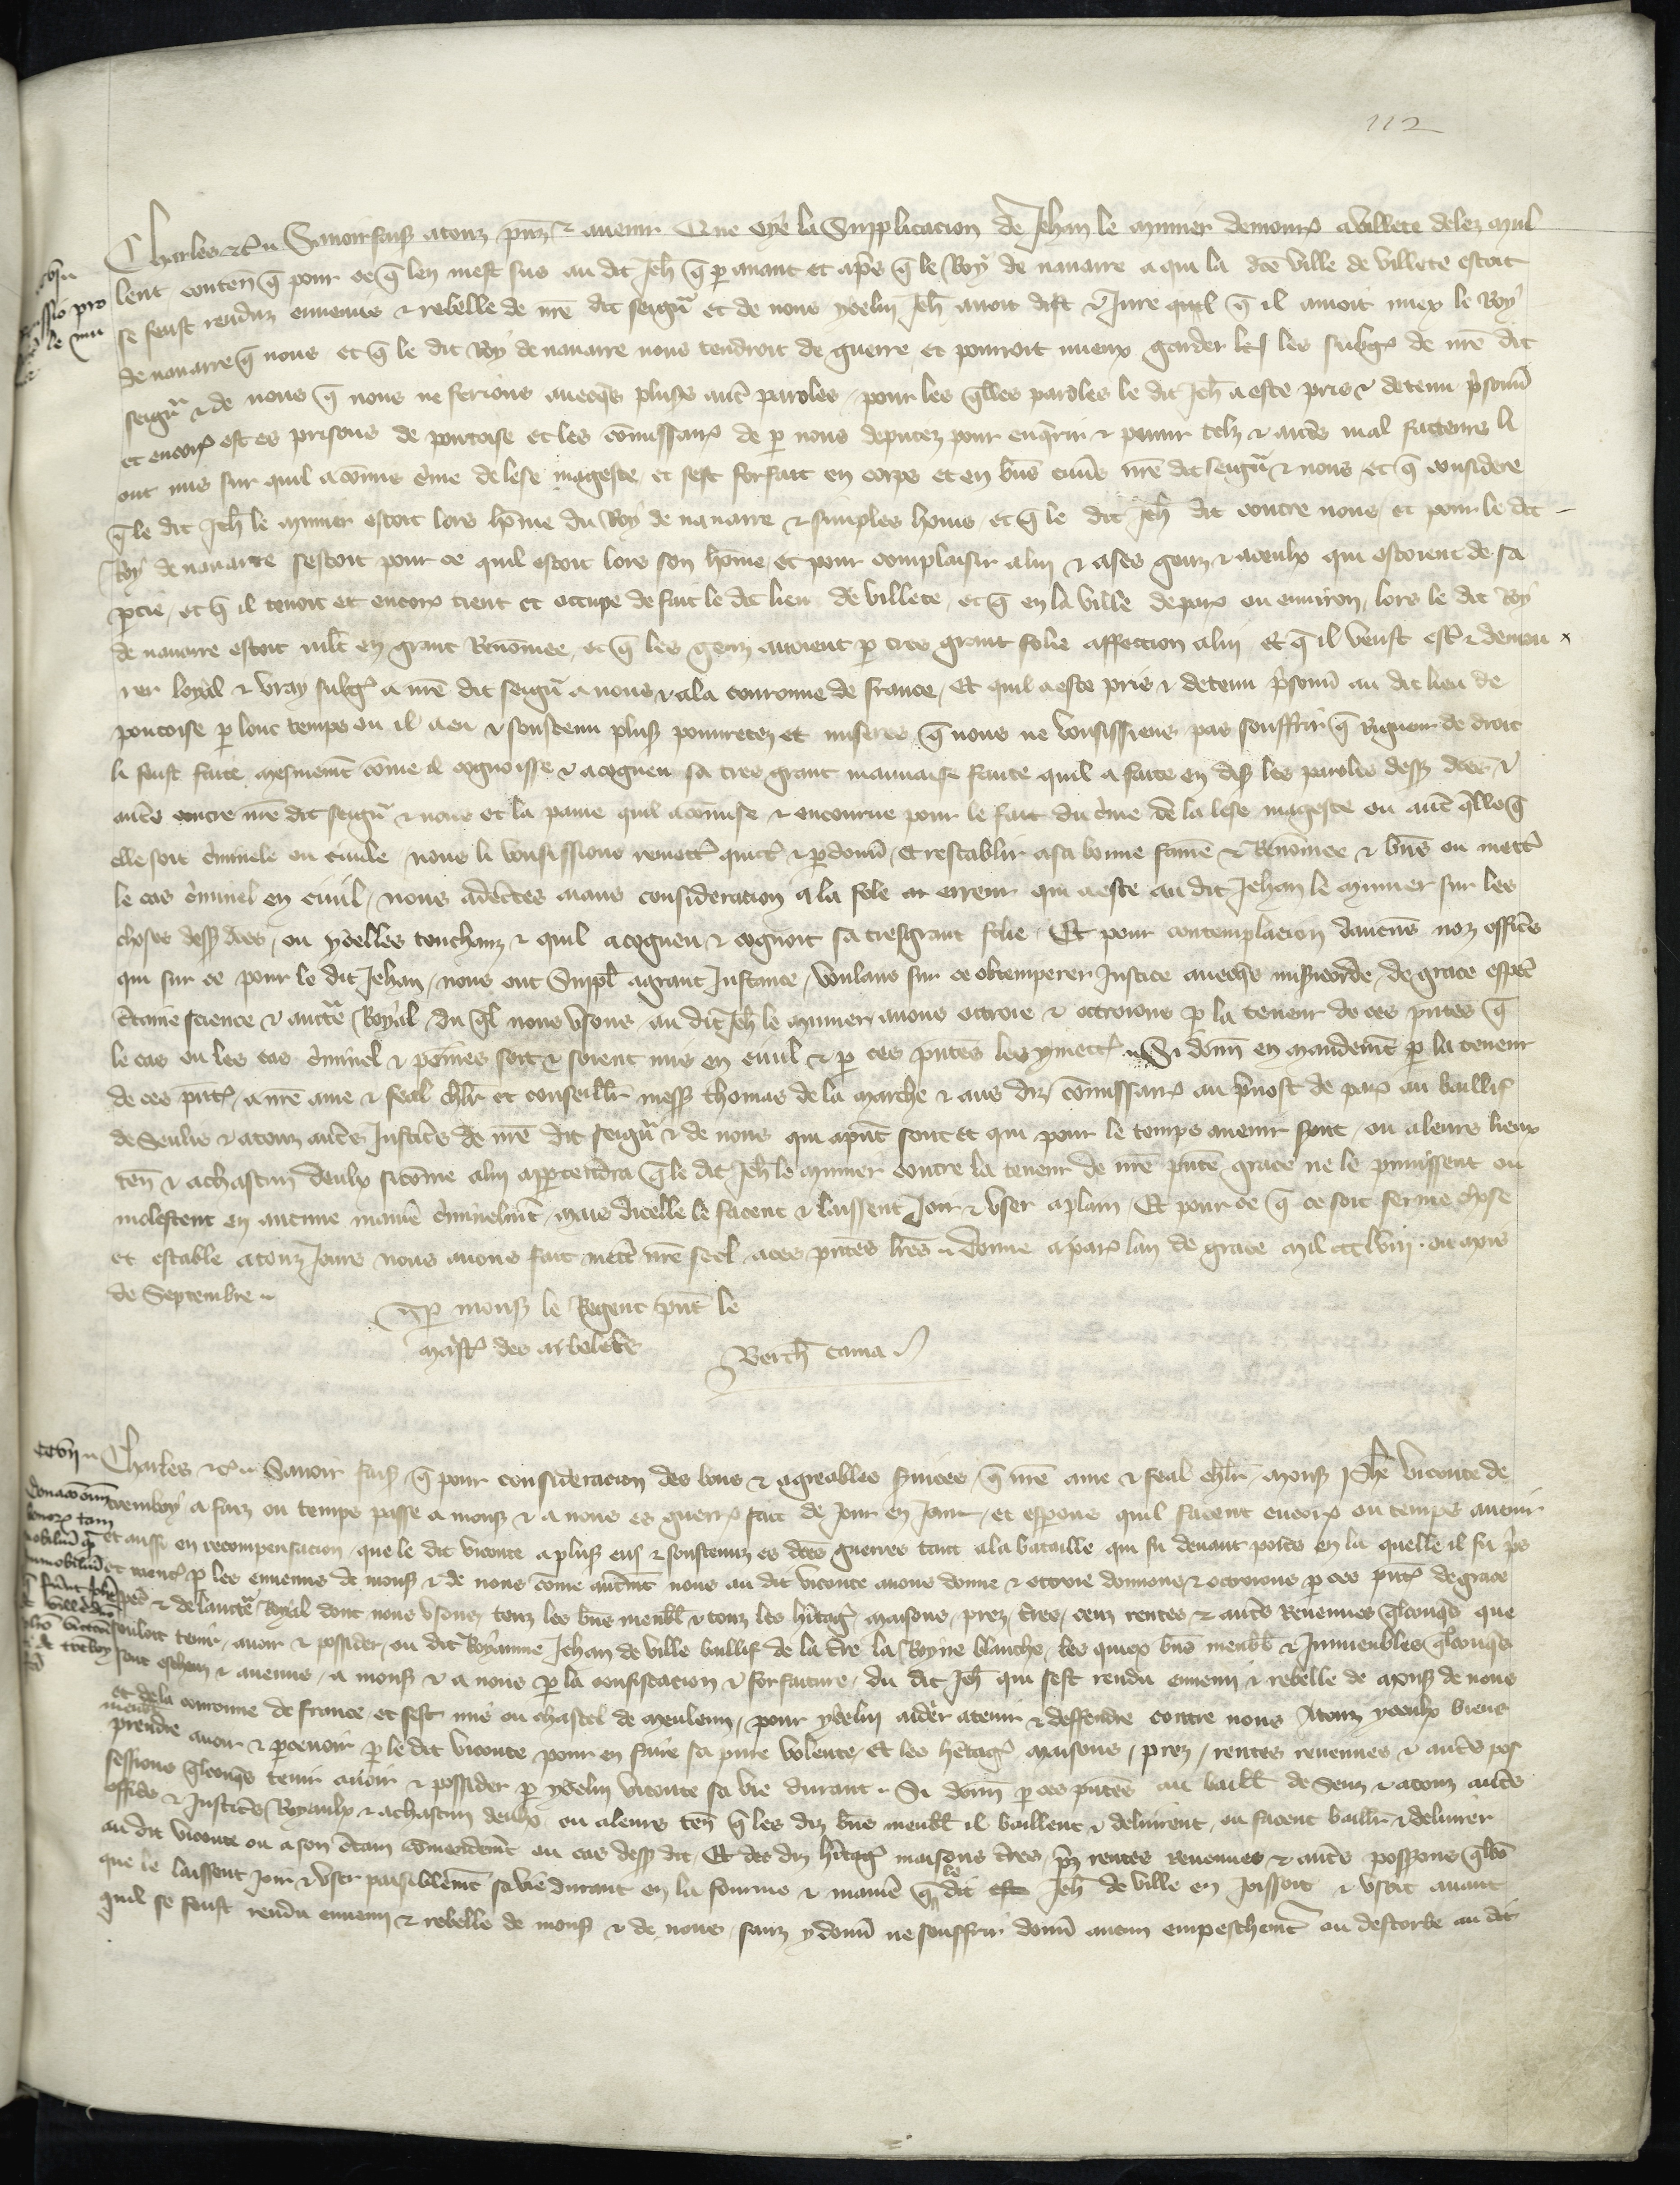 112
Charles etc. Savoir fais a touz pñz et avenir Que oye la Supplicacion de Jehan le munier demourñ a villete delez mul
lent conteñ q̃ pour ce q̃ len mest sus au dit Jeh̃ q̃ p avant et apˢ q̃ le Roy de navarre a qui la dc̃e ville de villete estoit
se feust renduz ennemis et rebelle de nrẽ dit seigñ et de nous ycelui Jeh̃ avoit dist et Jure quil q̃ il amoit miex le Roy
de navarre q̃ nous et q̃ le dit Roy de navarre nous tendroit de guerre et pourroit mieux garder les les subgˢ de nrẽ dit
seigñ et de nous q̃ nous ne ferions avecq̃s plusˢ autˢ paroles pour les q̃lles paroles le dit Jeh̃ a este pris et detenu p̃sonñ
et encorˢ est es prisons de pontoise et les cõmissairˢ de p nous deputez pour enq̃rir et punir telz et autˢ mal facteurs li
ont mis sur quil a cõmis c̃me de lese mageste et sest forfait en corps et en biñs envˢ nrẽ dit seigñ et nous et q̃ considere
q̃ le dit Jeh̃ le munier estoit lors hõme du Roy de navarre et simples homs et q̃ le dit Jeh̃ dit contre nous et pour le dit
Roy de navarre sestoit pour ce quil estoit lors son hõme et pour complaisir a lui et a ses genz et a ceulx qui estoient de sa
ptie et q̃ il tenoit et encorˢ tient et occupe de fait le dit lieu de villete et q̃ en la ville de parˢ ou environ lors le dit Roy
de navarre estoit mlt̃ en grant Renõmee et q̃ les genz avoient p tres grant folie affection a lui et q̃ il veust estˢ et demou
rer loyal et vray subgˢ a nrẽ dit seigñ a nous et a la couronne de france Et quil a este pris et detenu p̃sonñ au dit lieu de
pontoise p lonc temps ou il a eu et soustenu plusˢ povretez et miseres q̃ nous ne vousissiens pas souffrir q̃ Rigueur de droit
li feust faite mesmemt̃ cõme il cognoisse et a cogneu sa tres grant mauvaise faute quil a faite en disˢ les paroles dessˢ dc̃es et
autˢ contre nrẽ dit seigñ et nous et la paine quil a cõmise et encourue pour le fait du c̃me de la lese mageste ou autˢ q̃lle q̃
elle soit c̃minele ou civile nous li vousissions remettˢ quictˢ et pdonñ et restablir a sa bonne fame et Renõmee et biñs ou mettˢ
le cas c̃minel en civil nous adc̃tes aians consideration a la fole et erreur qui a este au dit Jehan le munier sur les
choses dessˢ dc̃es ou ycelles touchanz et quil a cogneu et cognoit sa tresgrant folie Et pour contemplacion daucuñs noz officˢ
qui sur ce pour le dit Jehan nous ont Suppl̃ a grant Instance voulans sur ce obtemperer Justice avecq̃s misˢicorde de grace espec̃
c̃taine science et auctˢ Royal du q̃l nous usons au dit Jeh̃ le munier avons octroie et octroions p la teneur de ces pñtes q̃
le cas ou les cas c̃minel et peines soit et soient mis en civil et p ces pñtes les y mettˢ Si donñ en mandemt̃ p la teneur
de ces pñtˢ a nrẽ ame et feal chlr̃ et conseillˢ messˢ thomas de la marche et aus diz cõmissairˢ au p̃vost de parˢ au baillif
de Senlis et a touz autˢ Justicˢ de nrẽ dit seigñ et de nous qui apñt sont et qui pour le temps avenir sont ou a leurs lieux
teñ et a chascun deulx sicõme a lui appartendra q̃ le dit Jeh̃ le munier contre la teneur de nrẽ pñte grace ne le punissent ou
molestent en aucune maniẽ c̃minelmt̃ mais dicelle le facent et laissent Joir et user a plain Et pour ce q̃ ce soit ferme chose
et estable a touz Jours nous avons fait mettˢ nrẽ seel a ces pñtes lrẽs donne a parˢ lan de grace Mil ccc lviii ou mois
de Septembre
p monsˢ le Regent pñt le
maistˢ des arbalestˢ
Berth̃ cama
ccvii
Charles etc. Savoir faisˢ q̃ pour consideracion des bons et agreables s̃vices q̃ nrẽ ame et feal chlr̃ monsˢ Jeh̃ viconte de
coremboy a faiz ou temps passe a monsˢ et a nous es guerrˢ fait de Jour en Jour et esperons quil facent encorˢ ou temps avenir
et aussi en recompensacion que le dit viconte a plusˢ eus et soustenuz es dc̃es guerres tant a la bataille qui fu devant poitˢ en la quelle il fu p̃s
et p les ennemis de monsˢ et de nous cõme autremt̃ nous au dit viconte avons donne et octroie donnons et octroions p ces pñtˢ de grace
espec̃ et de lauctˢ Royal dont nous usons touz les biñs meubl̃ et touz les hˢitagˢ maisons prez tˢres cens rentes et autˢ Revenues q̃lconq̃s que
souloit tenir avoir et possider ou dit Royaume Jehan de ville baillif de la tˢre la Royne blanche les quiex biñs meubl̃ et Inmeubles q̃lconq̃s
sont escheuz et avenuz a monsˢ et a nous p la confiscacion et forfaiture du dit Jeh̃ qui sest rendu ennemi et rebelle de monsˢ de nous
et de la couronne de france et sest mis ou chastel de meulenn pour ycelui aider a tenir et deffendre contre nous A touz yceulx biens
meubl̃ prendre avoir et pcevoir p le dit viconte pour en faire sa pure volente Et les hˢitagˢ maisons prez rentes revenues et autˢ pos
sessions q̃lconq̃s tenir avoir et possider p ycelui viconte sa vie durant Si donñ p ces pñtes au baill̃ de Senz et a touz autˢ
officˢ et Justicˢ Royaulx et a chascun deulx ou a leurs teñ q̃ les diz biñs meubl̃ il baillent et delivrent ou facent baillˢ et delivrer
au dit viconte ou a son c̃tain cõmandemt̃ ou cas dessˢ dit Et des diz hˢitagˢ maisons tˢres prez rentes revenues et autˢ possions q̃lcõ
que le laissent Joir et user paisiblemt̃ sa vie durant en la fourme et maniẽ q̃ le dit Jeh̃ de ville en Joissoit et usoit avant
quil se feust rendu ennemi et rebelle de monsˢ et de nous sanz y donñ ne souffrir donñ aucun empeschemt̃ ou destorbe au dit